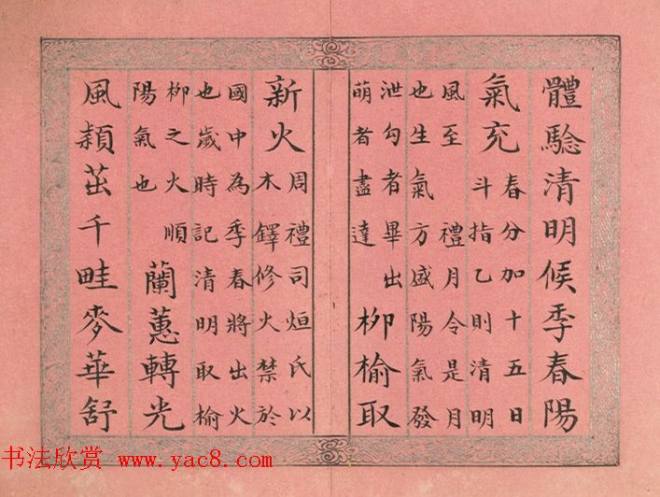 體驗清明候季春陽
氣充
春分加十五日
斗指乙則清明
風至 禮月令是月
也生氣方盛陽氣發
泄勾者畢出
萌者盡達
柳榆取
新火
周禮司烜氏以
木鐸修火禁於
國中為季春將出火
也歲時記清明取榆
柳之火順
陽氣也
蘭蕙轉光
風頴茁千畦麥華舒
书法欣赏 www.yac8.com